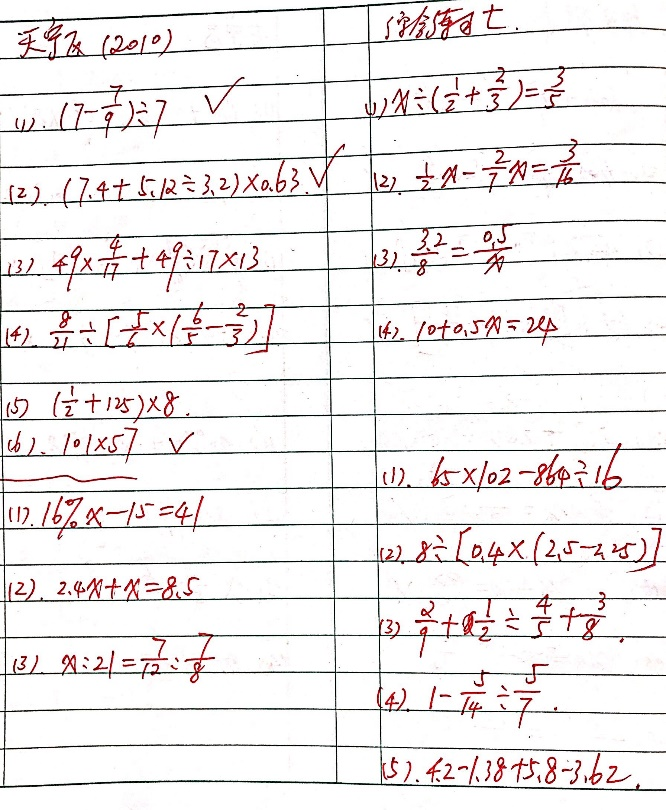 天宁区 (2010)
(1). (7-7/9)÷7 ✓
(2). (7.4+5.12÷3.2)×0.63. ✓
(3) 49×4/17+49÷17×13
(4). 8/21÷[5/6×(6/5-2/3)]
(5) (1/2+125)×8.
(6). 101×57 ✓
(1). 16%x-15=41
(2). 2.4x+x=8.5
(3) x:21=7/12:7/8
(1) x÷(1/2+2/3)=3/5
(2). 1/2x-2/7x=3/16
(3). 3.2/8=0.5/x
(4). 10+0.5x=24
(1). 65×102-864÷16
(2). 8÷[0.4×(2.5-2.25)]
(3) 2/9+1/2÷4/5+3/8.
(4). 1-5/14÷5/7.
(5). 4.2-1.38+5.8-3.62.